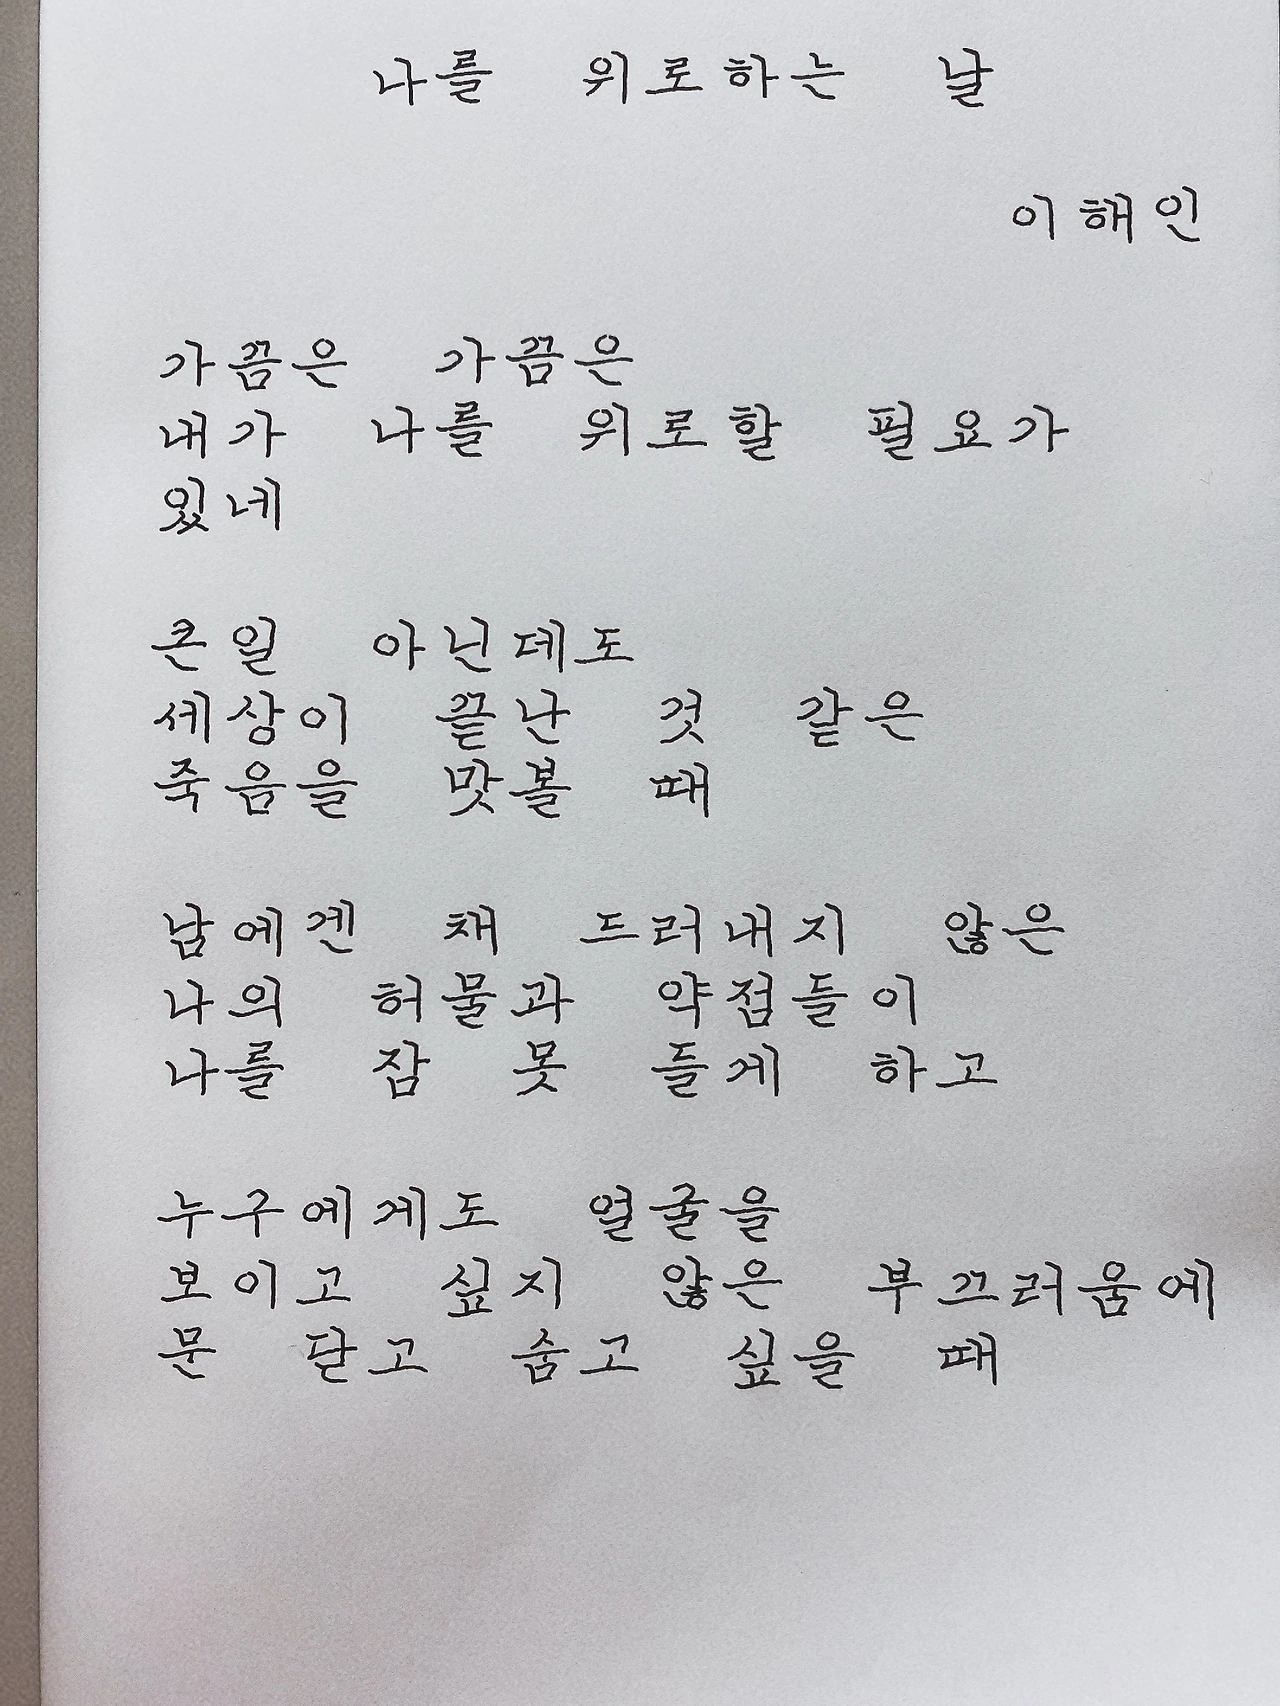 나를 위로하는 날
이해인
가끔은 가끔은
내가 나를 위로할 필요가
있네
큰일 아닌데도
세상이 끝난 것 같은
죽음을 맛볼 때
남에겐 채 드러내지 않은
나의 허물과 약점들이
나를 잠 못 들게 하고
누구에게도 얼굴을
보이고 싶지 않은 부끄러움에
문 닫고 숨고 싶을 때